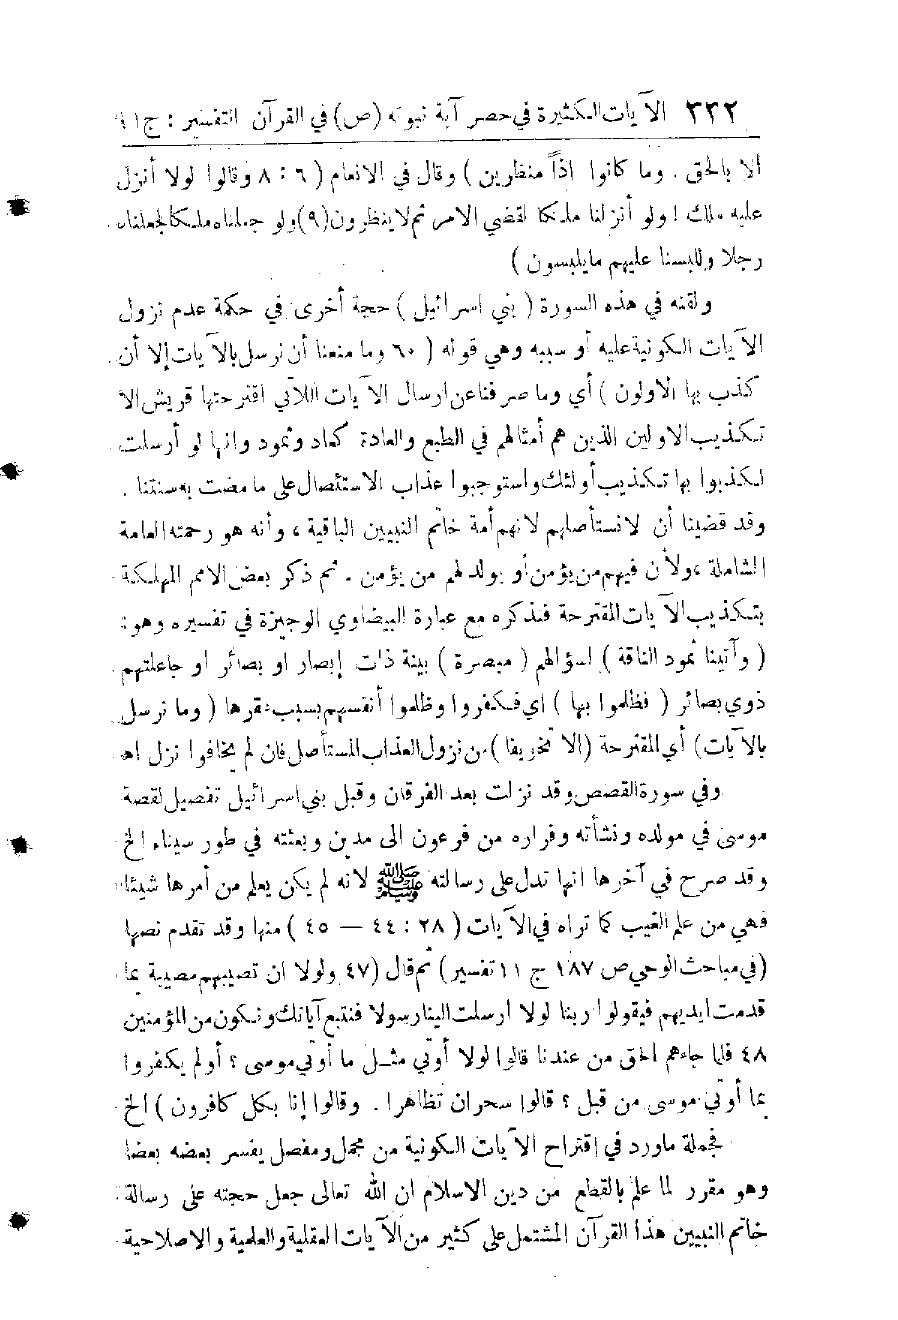 ٣٣٢ الآيات الكثيرة في حصر آية نبوته (ص) في القرآن التفسير : ج ١١
الا بالحق . وما كانوا اذاً منظرين ) وقال في الانعام ( ٦ : ٨ وقالوا لولا أنزل
عليه ملك ! ولو أنزلنا ملكا لقضي الامر ثم لا ينظرون (٩) ولو جعلناه ملكا لجعلناه
رجلا وللبسنا عليهم ما يلبسون )
ولقنه في هذه السورة ( بني اسرائيل ) حجة أخرى في حكمة عدم نزول
الآيات الكونية عليه أو سببه وهي قوله ( ٦٠ وما منعنا أن نرسل بالآيات إلا أن
كذب بها الاولون ) أي وما صرفنا عن ارسال الآيات اللاتي اقترحتها قريش الا
تكذيب الاولين الذين هم أمثالهم في الطبع والعادة كعاد وثمود وانها لو أرسلت
لكذبوا بها تكذيب أولئك واستوجبوا عذاب الاستئصال على ما مضت به سنتنا .
وقد قضينا أن لا نستأصلهم لانهم أمة خاتم النبيين الباقية ، وأنه هو رحمته العامة
الشاملة ، ولأن فيهم من يؤمن أو يولد لهم من يؤمن . ثم ذكر بعض الامم المهلكة
بتكذيب الآيات المقترحة فنذكره مع عبارة البيضاوي الوجيزة في تفسيره وهو :
( وآتينا ثمود الناقة ) لسؤالهم ( مبصرة ) بينة ذات إبصار او بصائر او جاعلتهم
ذوي بصائر ( فظلموا بها ) اي فكفروا وظلموا أنفسهم بسبب عقرها ( وما نرسل
بالآيات) أي المقترحة (الا تخويفا ) من نزول العذاب المستأصل فان لم يخافوا نزل اه
وفي سورة القصص وقد نزلت بعد الفرقان وقبل بني اسرائيل تفصيل لقصة
موسى في مولده ونشأته وفراره من فرعون الى مدين وبعثته في طور سيناء الخ
وقد صرح في آخرها انها تدل على رسالته ﷺ لانه لم يكن يعلم من أمرها شيئا
فهي من علم الغيب كما تراه في الآيات ( ٢٨ : ٤٤ — ٤٥ ) منها وقد تقدم نصها
(في مباحث الوحي ص ١٨٧ ج ١١ تفسير) ثم قال (٤٧ ولولا ان تصيبهم مصيبة بما
قدمت ايديهم فيقولوا ربنا لولا ارسلت الينا رسولا فنتبع آياتك ونكون من المؤمنين
٤٨ فلما جاءهم الحق من عندنا قالوا لولا أوتي مثل ما أوتي موسى ؟ أولم يكفروا
بما أوتي موسى من قبل ؟ قالوا سحران تظاهرا . وقالوا إنا بكل كافرون ) الخ
فجملة ما ورد في اقتراح الآيات الكونية من مجمل ومفصل يفسر بعضه بعضا
وهو مقرر لما علم بالقطع من دين الاسلام ان الله تعالى جعل حجته على رسالة
خاتم النبيين هذا القرآن المشتمل على كثير من الآيات العقلية والعلمية والاصلاحية